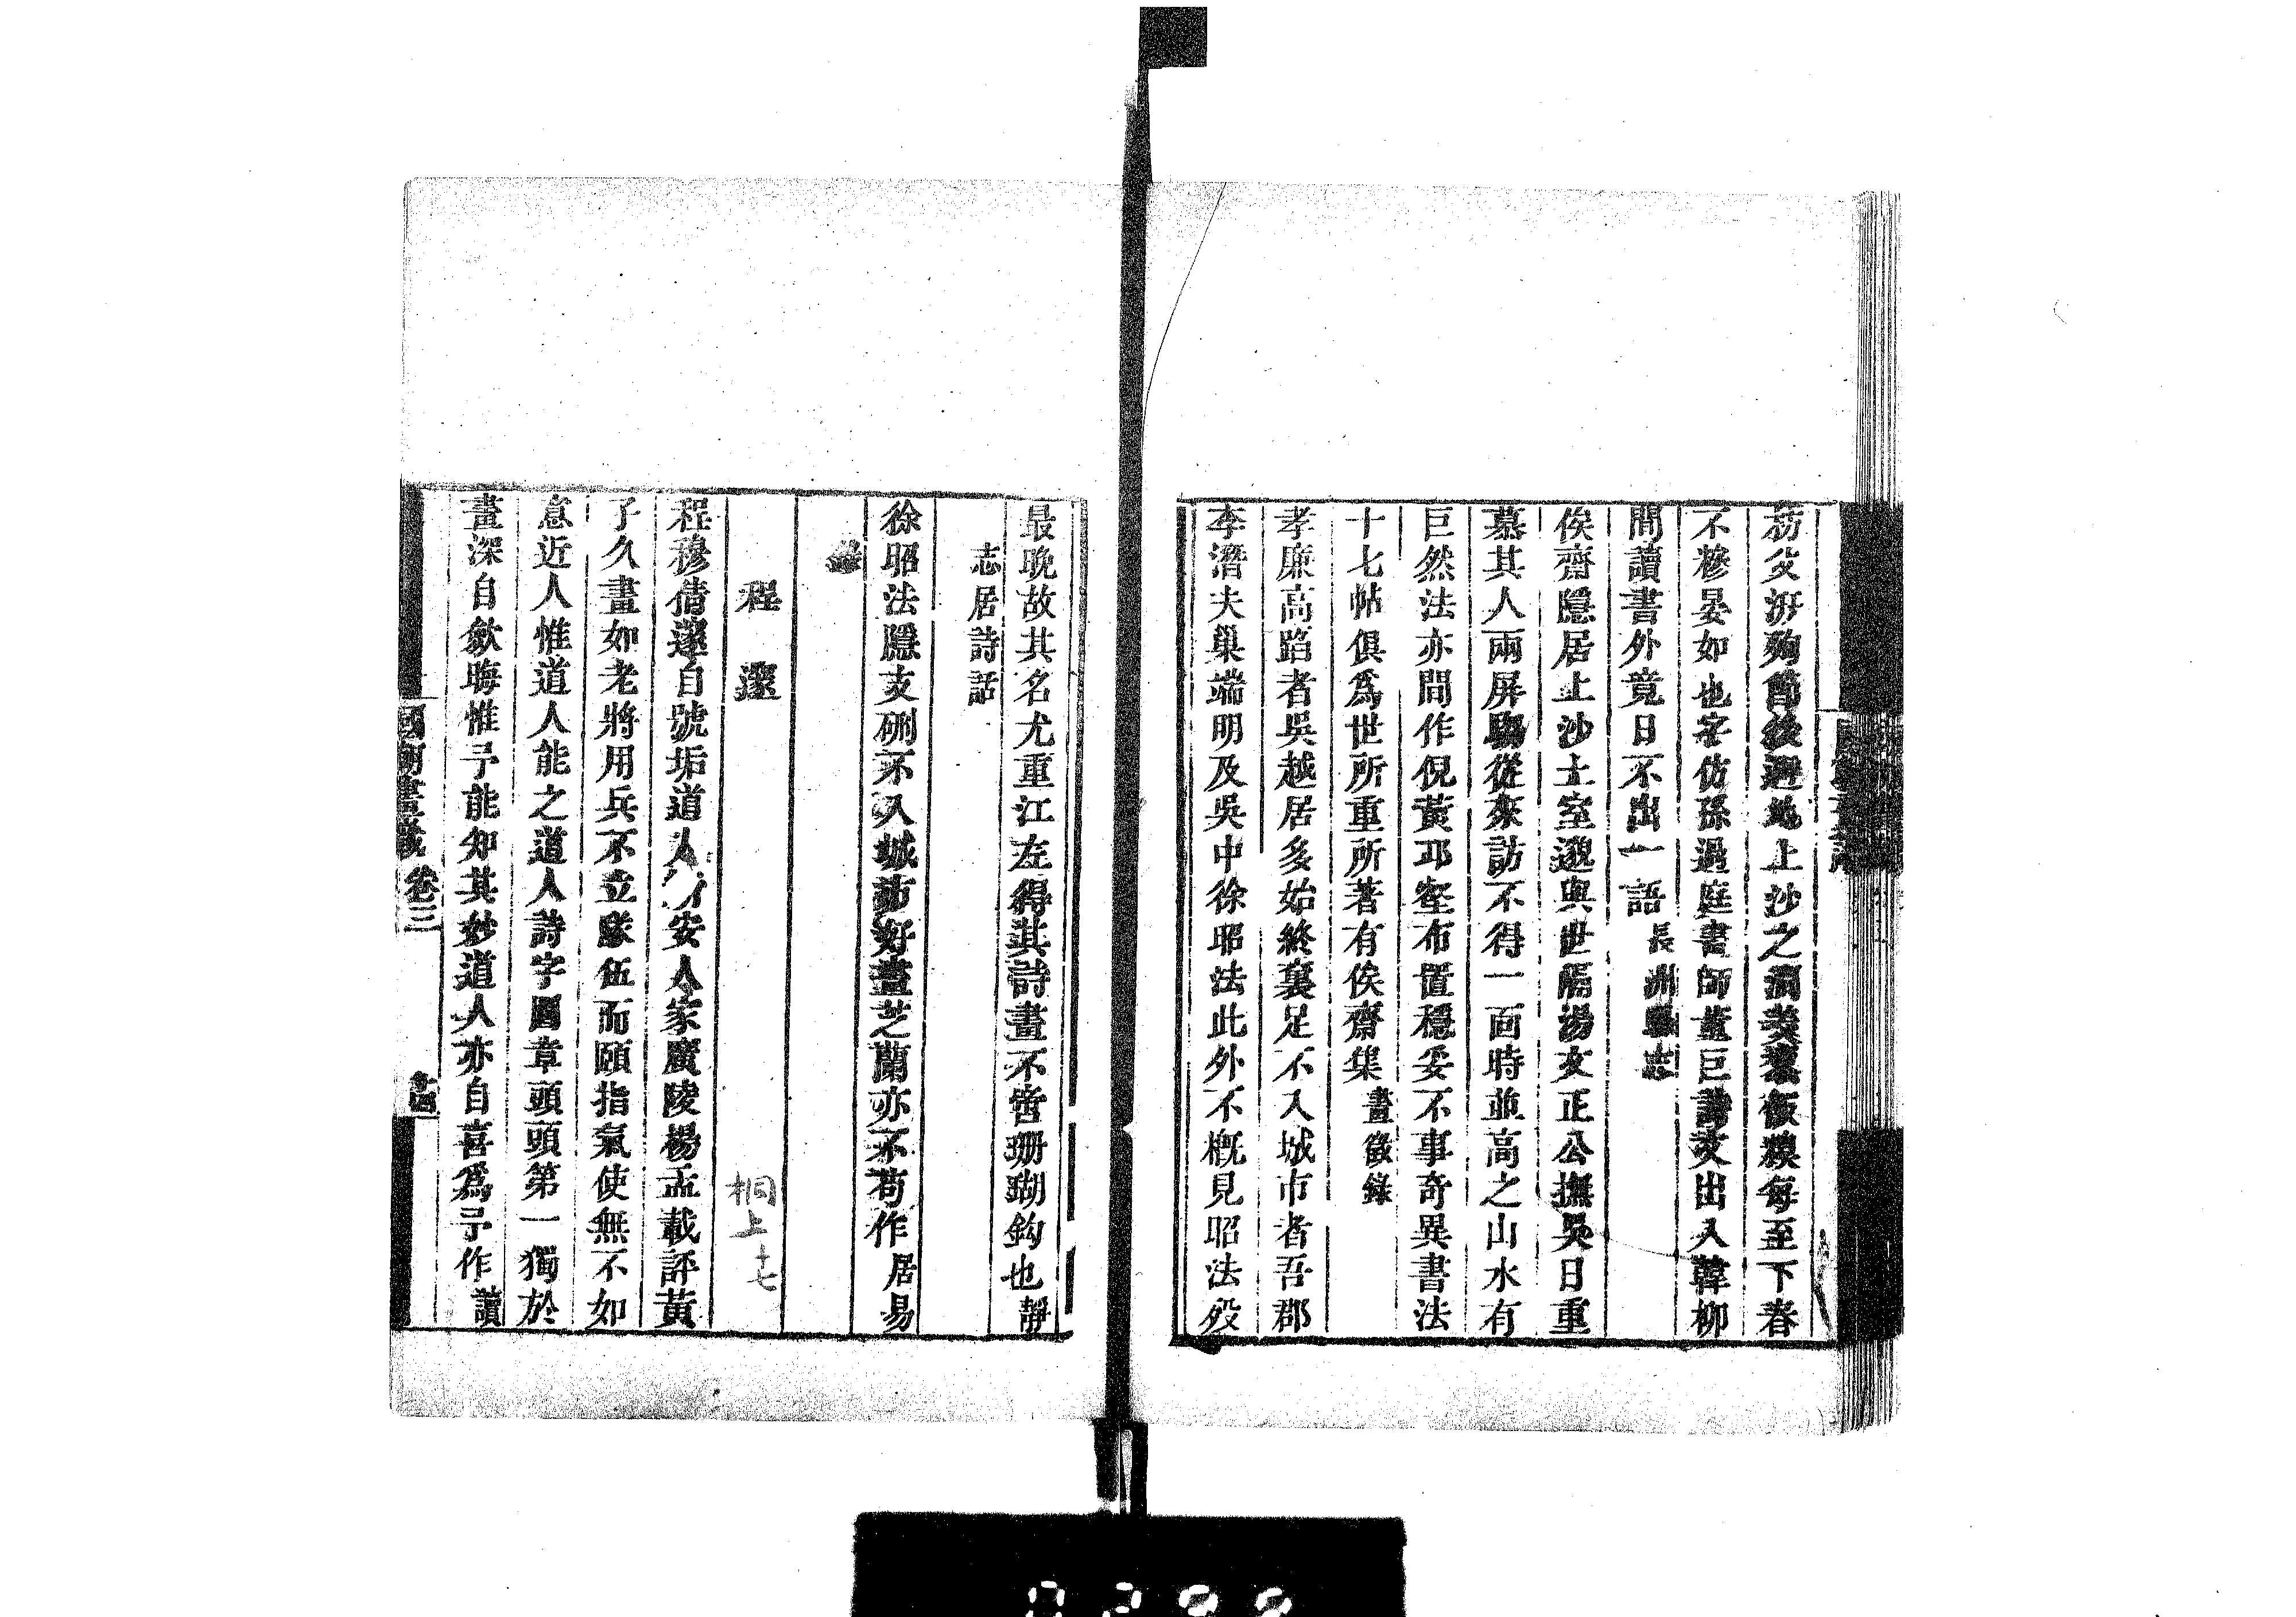 枋父汧殉節後遯跡上沙之澗美羹飯糗每至下舂
不糝晏如也字仿孫過庭書師董巨詩文出入韓柳
間讀書外竟日不出一語長洲縣志
俟齋隱居上沙土室邈與世隔湯文正公撫吳日重
慕其人兩屏騶從來訪不得一面時並高之山水有
巨然法亦間作倪黃邱壑布置穩妥不事奇異書法
十七帖俱爲世所重所著有俟齋集畫徵錄
孝廉高蹈者吳越居多始終裹足不入城市者吾郡
李潛夫巢端明及吳中徐昭法此外不槪見昭法歿
最晚故其名尤重江左得其詩畫不啻珊瑚鈎也靜
志居詩話
徐昭法隱支硎不入城市好畫芝蘭亦不苟作居易
錄
程邃
桐上十七
程穆倩邃自號垢道人新安人家廣陵楊孟載評黃
子久畫如老將用兵不立隊伍而頤指氣使無不如
意近人惟道人能之道人詩字圖章頭頭第一獨於
畫深自斂晦惟予能知其妙道人亦自喜爲予作讀
國朝畫識 卷三 十四